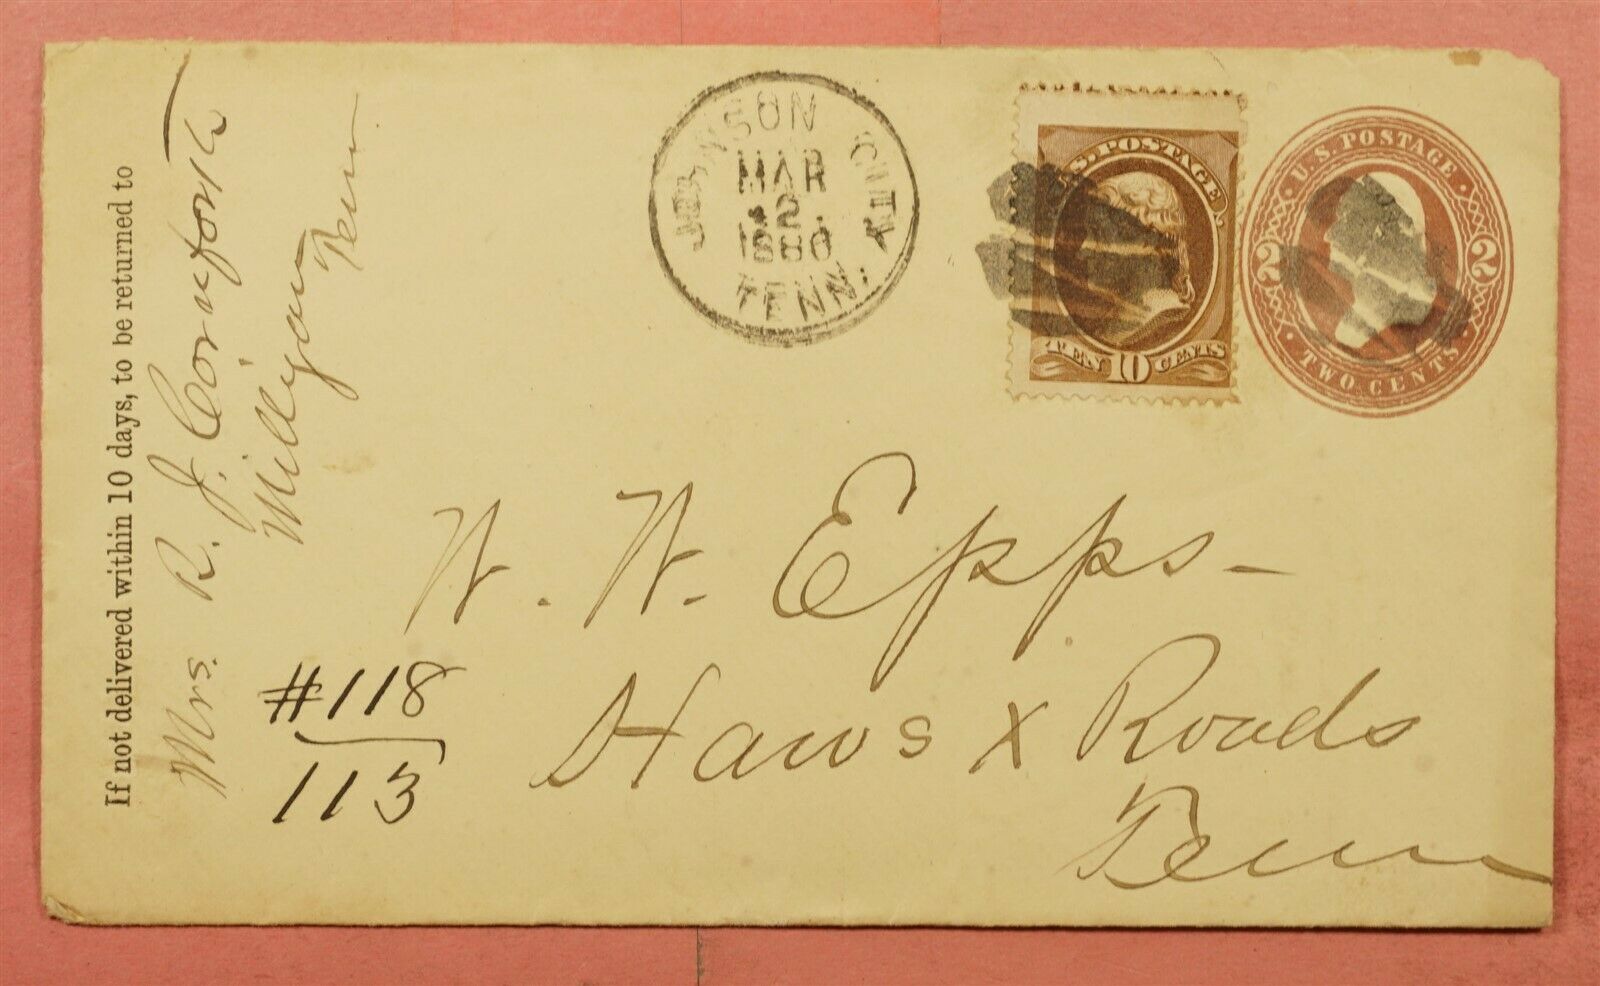 If not delivered within 10 days, to be returned to
Mrs. R. J. Cornforth
Milligan
Tenn
JOHNSON CITY
MAR
12
1886
TENN.
U.S. POSTAGE.
TEN 10 CENTS
U.S. POSTAGE
2 2
TWO CENTS
W. W. Epps-
Haws X Roads
Tenn
#118
113